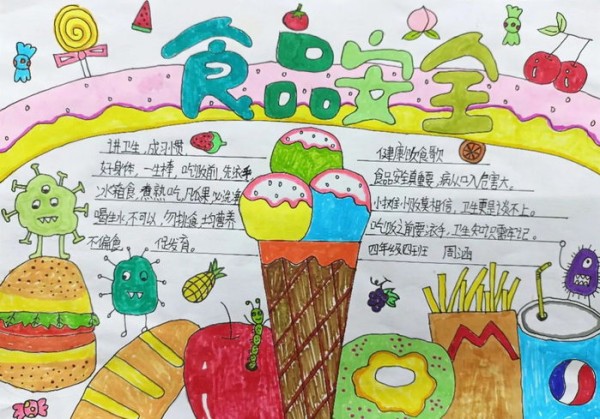 食品安全
讲卫生,成习惯,
好身体,一生棒,吃饭前,先洗手
冰箱食,煮熟吃,果,必洗净
喝生水,不可以,勿挑食,均营养
不偏色 促发育。
健康饮食歌
食品安全真重要,病从口入危害大。
小摊小贩莫相信,卫生更是谈不上。
吃饭之前要洗手,卫生知识需牢记。
四年级四班 周涵
M